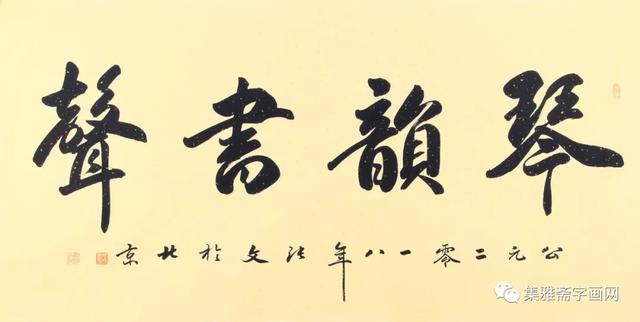 琴韻書聲
公元二零一八年張文於北京
集雅斋字画网